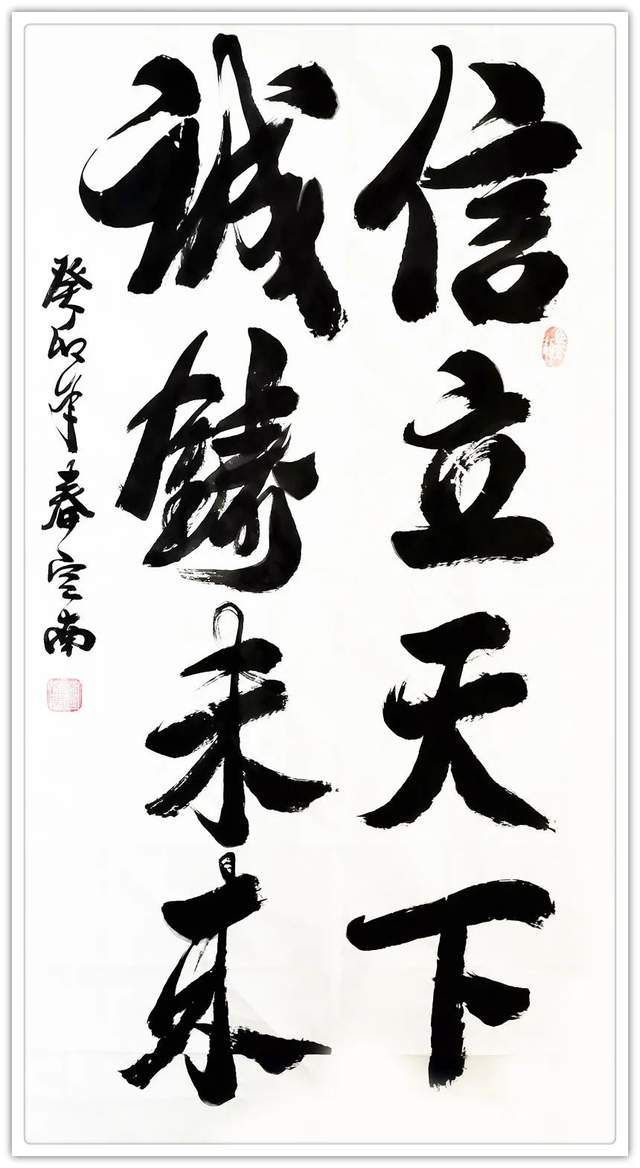 信立天下
诚铸未来
癸卯年春定南